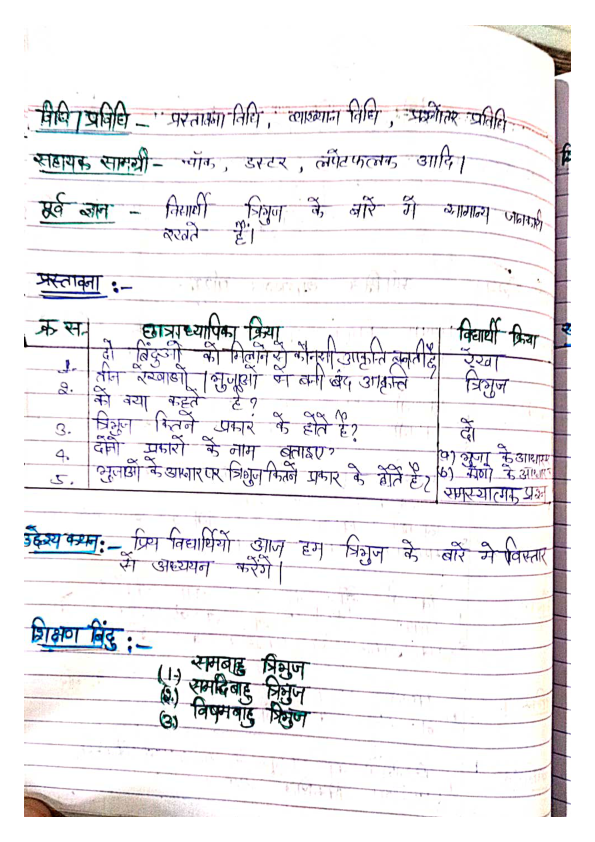 विधि/प्रविधि – प्रस्तावना विधि, व्याख्यान विधि, प्रश्नोतर प्रविधि
सहायक सामग्री – चॉक, डस्टर, लपेटफलक आदि।
पूर्व ज्ञान – विद्यार्थी त्रिभुज के बारे में सामान्य जानकारी
रखते हैं।
प्रस्तावना :–
क्र स. छात्राध्यापिका क्रिया विद्यार्थी क्रिया
1. दो बिंदुओं को मिलाने से कौनसी आकृति बनती है? रेखा
2. तीन रेखाओं / भुजाओं से बनी बंद आकृति त्रिभुज
को क्या कहते है?
3. त्रिभुज कितने प्रकार के होते है? दो
4. दोनों प्रकारों के नाम बताइए? a) भुजा के आधार
5. भुजाओं के आधार पर त्रिभुज कितने प्रकार के होते है? b) कोणों के आधार
समस्यात्मक प्रश्न
उद्देश्य कथन:– प्रिय विद्यार्थियों आज हम त्रिभुज के बारे मे विस्तार
से अध्ययन करेंगे।
शिक्षण बिंदु :–
(1.) समबाहु त्रिभुज
(2.) समद्विबाहु त्रिभुज
(3) विषमबाहु त्रिभुज